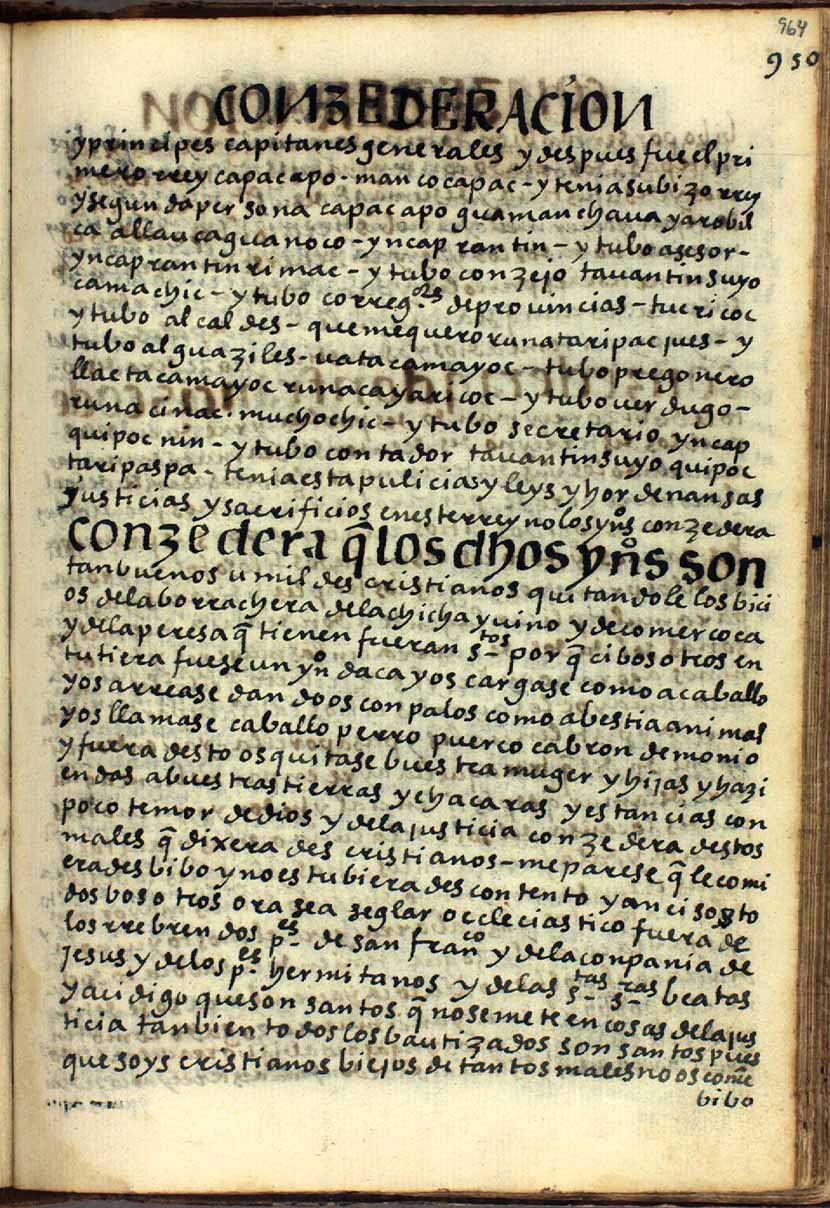 964
950
CONZEDERACION
y prinsipes capitanes generales y despues fue el pri
mero rrey capac apo - manco capac - y tenia su bizorrey
y segunda persona capac apo guaman chaua yarobil
ca allauca guanoco - yncap rantin - y tubo asesor -
yncap rantin rimac - y tubo conzejo tauantin suyo
camachic - y tubo correg.ores de prouincias - tucricoc
y tubo alcaldes - quemequero runa taripac jues - y
tubo alguaziles - uatacamayoc - tubo pregonero
llactacamayoc runa cayaricoc - y tubo uerdugo -
runa cinac muchochic - y tubo secretario yncap
quipocnin - y tubo contador tauantin suyo quipoc
taripaspa - tenia esta pulicia y leys y hordenansas
justicias y sacrificios en este rreyno los yn.os conzedera
conzedera q̃ los dhos yn.os son
tan buenos umildes cristianos quitandole los bici
os de la borrachera de la chicha y uino y de comer coca
y de la peresa q̃ tienen fueran s.tos porq̃ ci bosotros en
tu tiera fuese un yn.o daca y os cargase como a caballo
y os arrease dandoos con palos como a bestia animal
y os llamase caballo perro puerco cabron demonio
y fuera desto os quitase buestra muger y hijas y hazi
endas a buestras tierras y chacaras y estancias con
poco temor de dios y de la justicia conzedera destos
males q̃ dixerades cristianos - me parese q̃ le comi
erades bibo y no estubierades contento y anci soys to
dos bosotros ora sea zeglar o ecleciastico fuera de
los rrebrendos p.es de san fran.co y de la conpania de
jesus y de los p.es hermitanos y de las s.tas s.ras beatas
y aci digo que son santos q̃ no se mete en cosas de la jus
ticia tanbien todos los bautizados son santos pues
que soys cristianos biejos de tantos males no os come
bibo